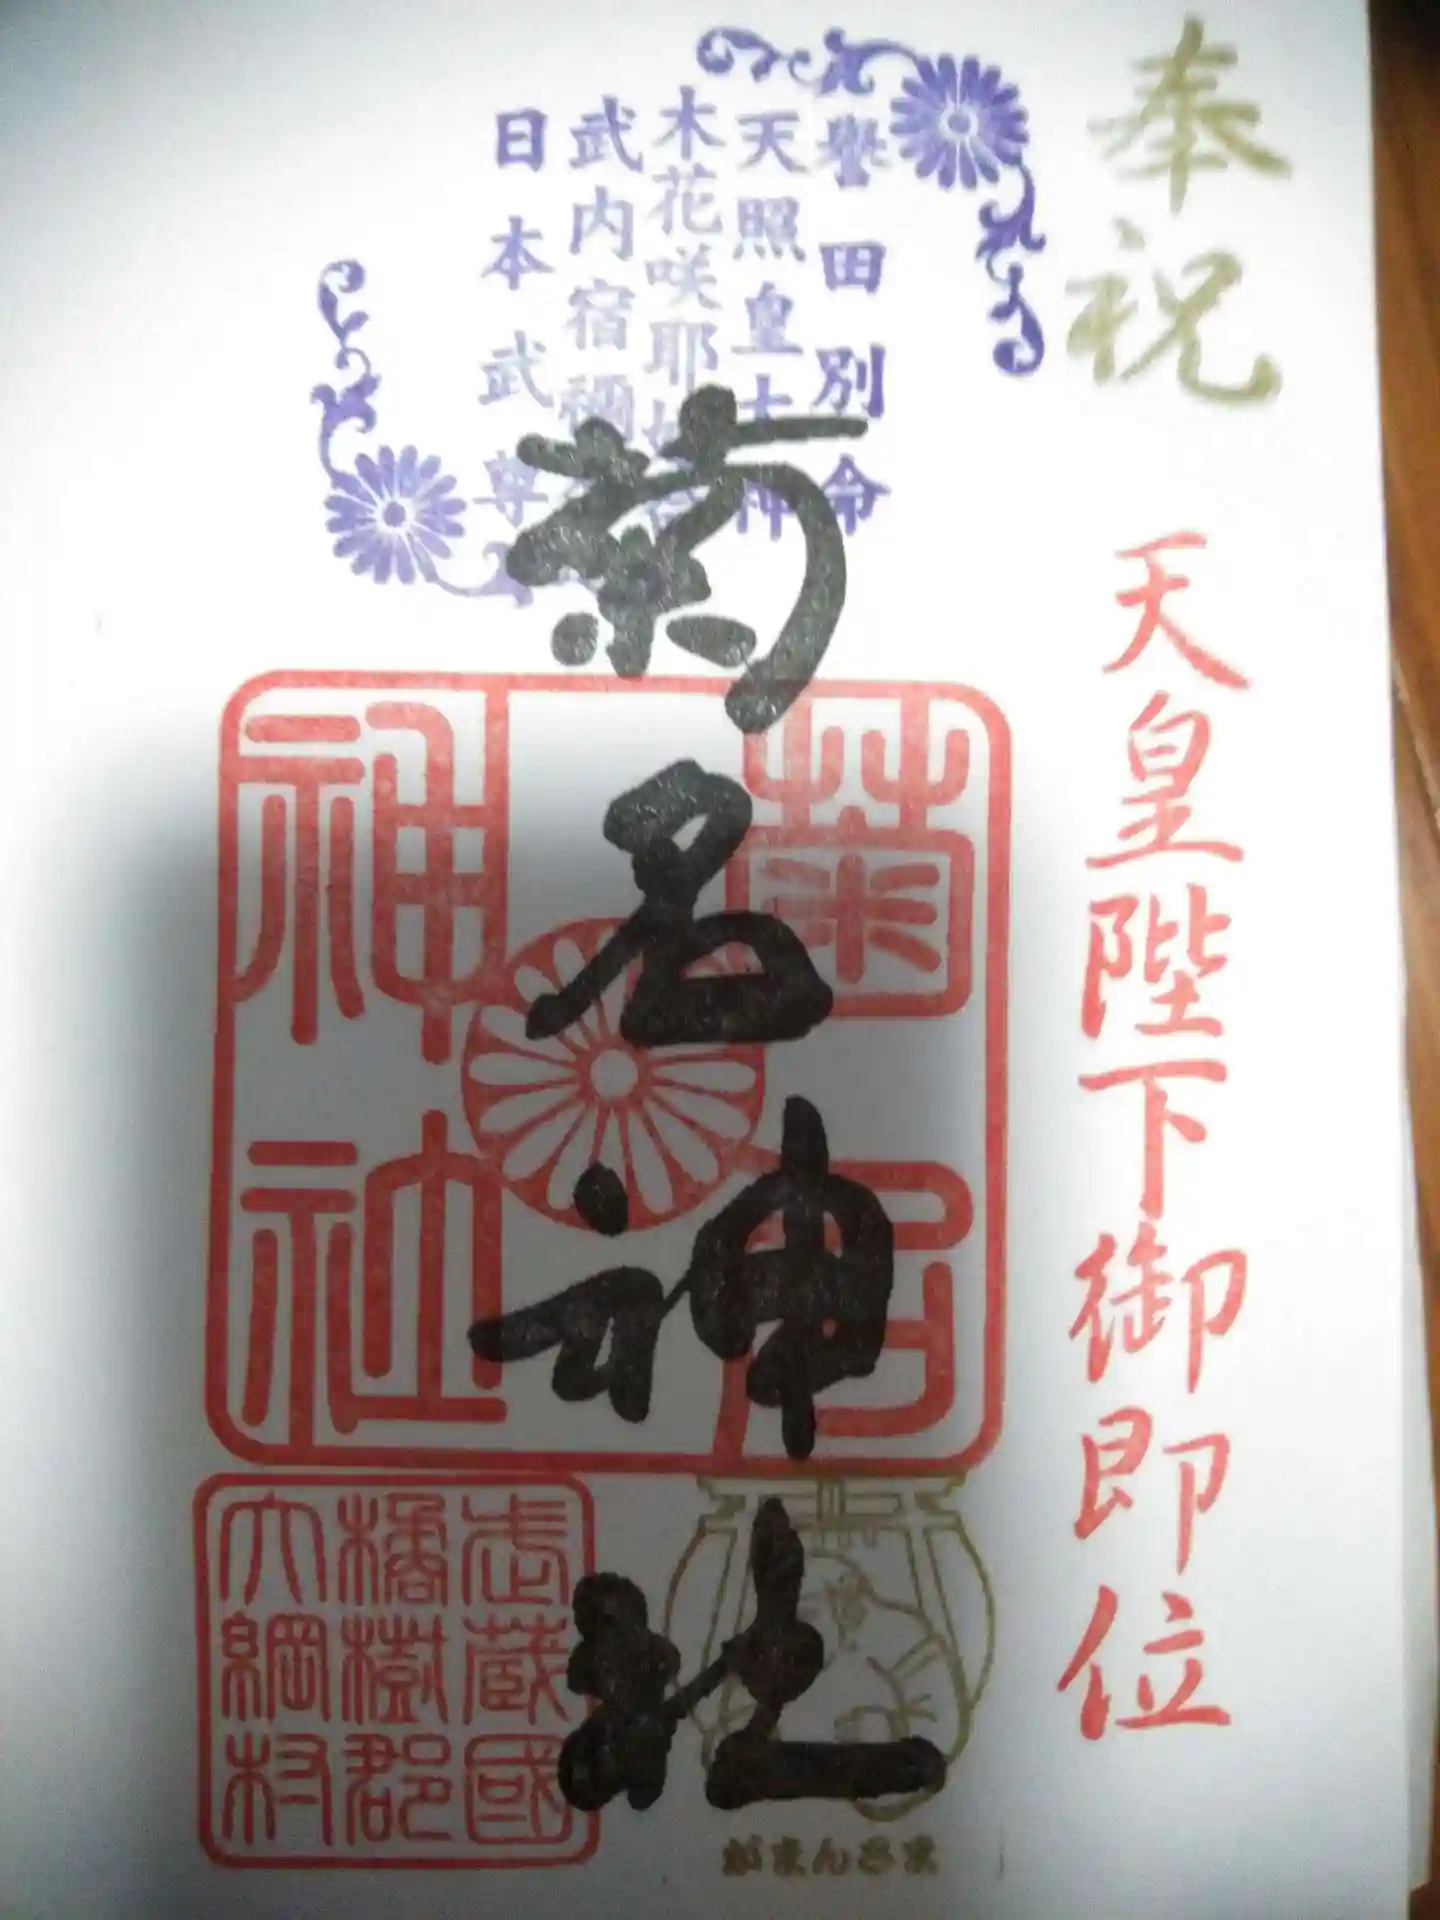 奉祝
天皇陛下御即位
譽田別命
天照皇大神
木花咲耶姫命
武内宿禰命
日本武尊
菊名神社
菊名
神社
武蔵國
橘樹郡
大綱村
がまんさま